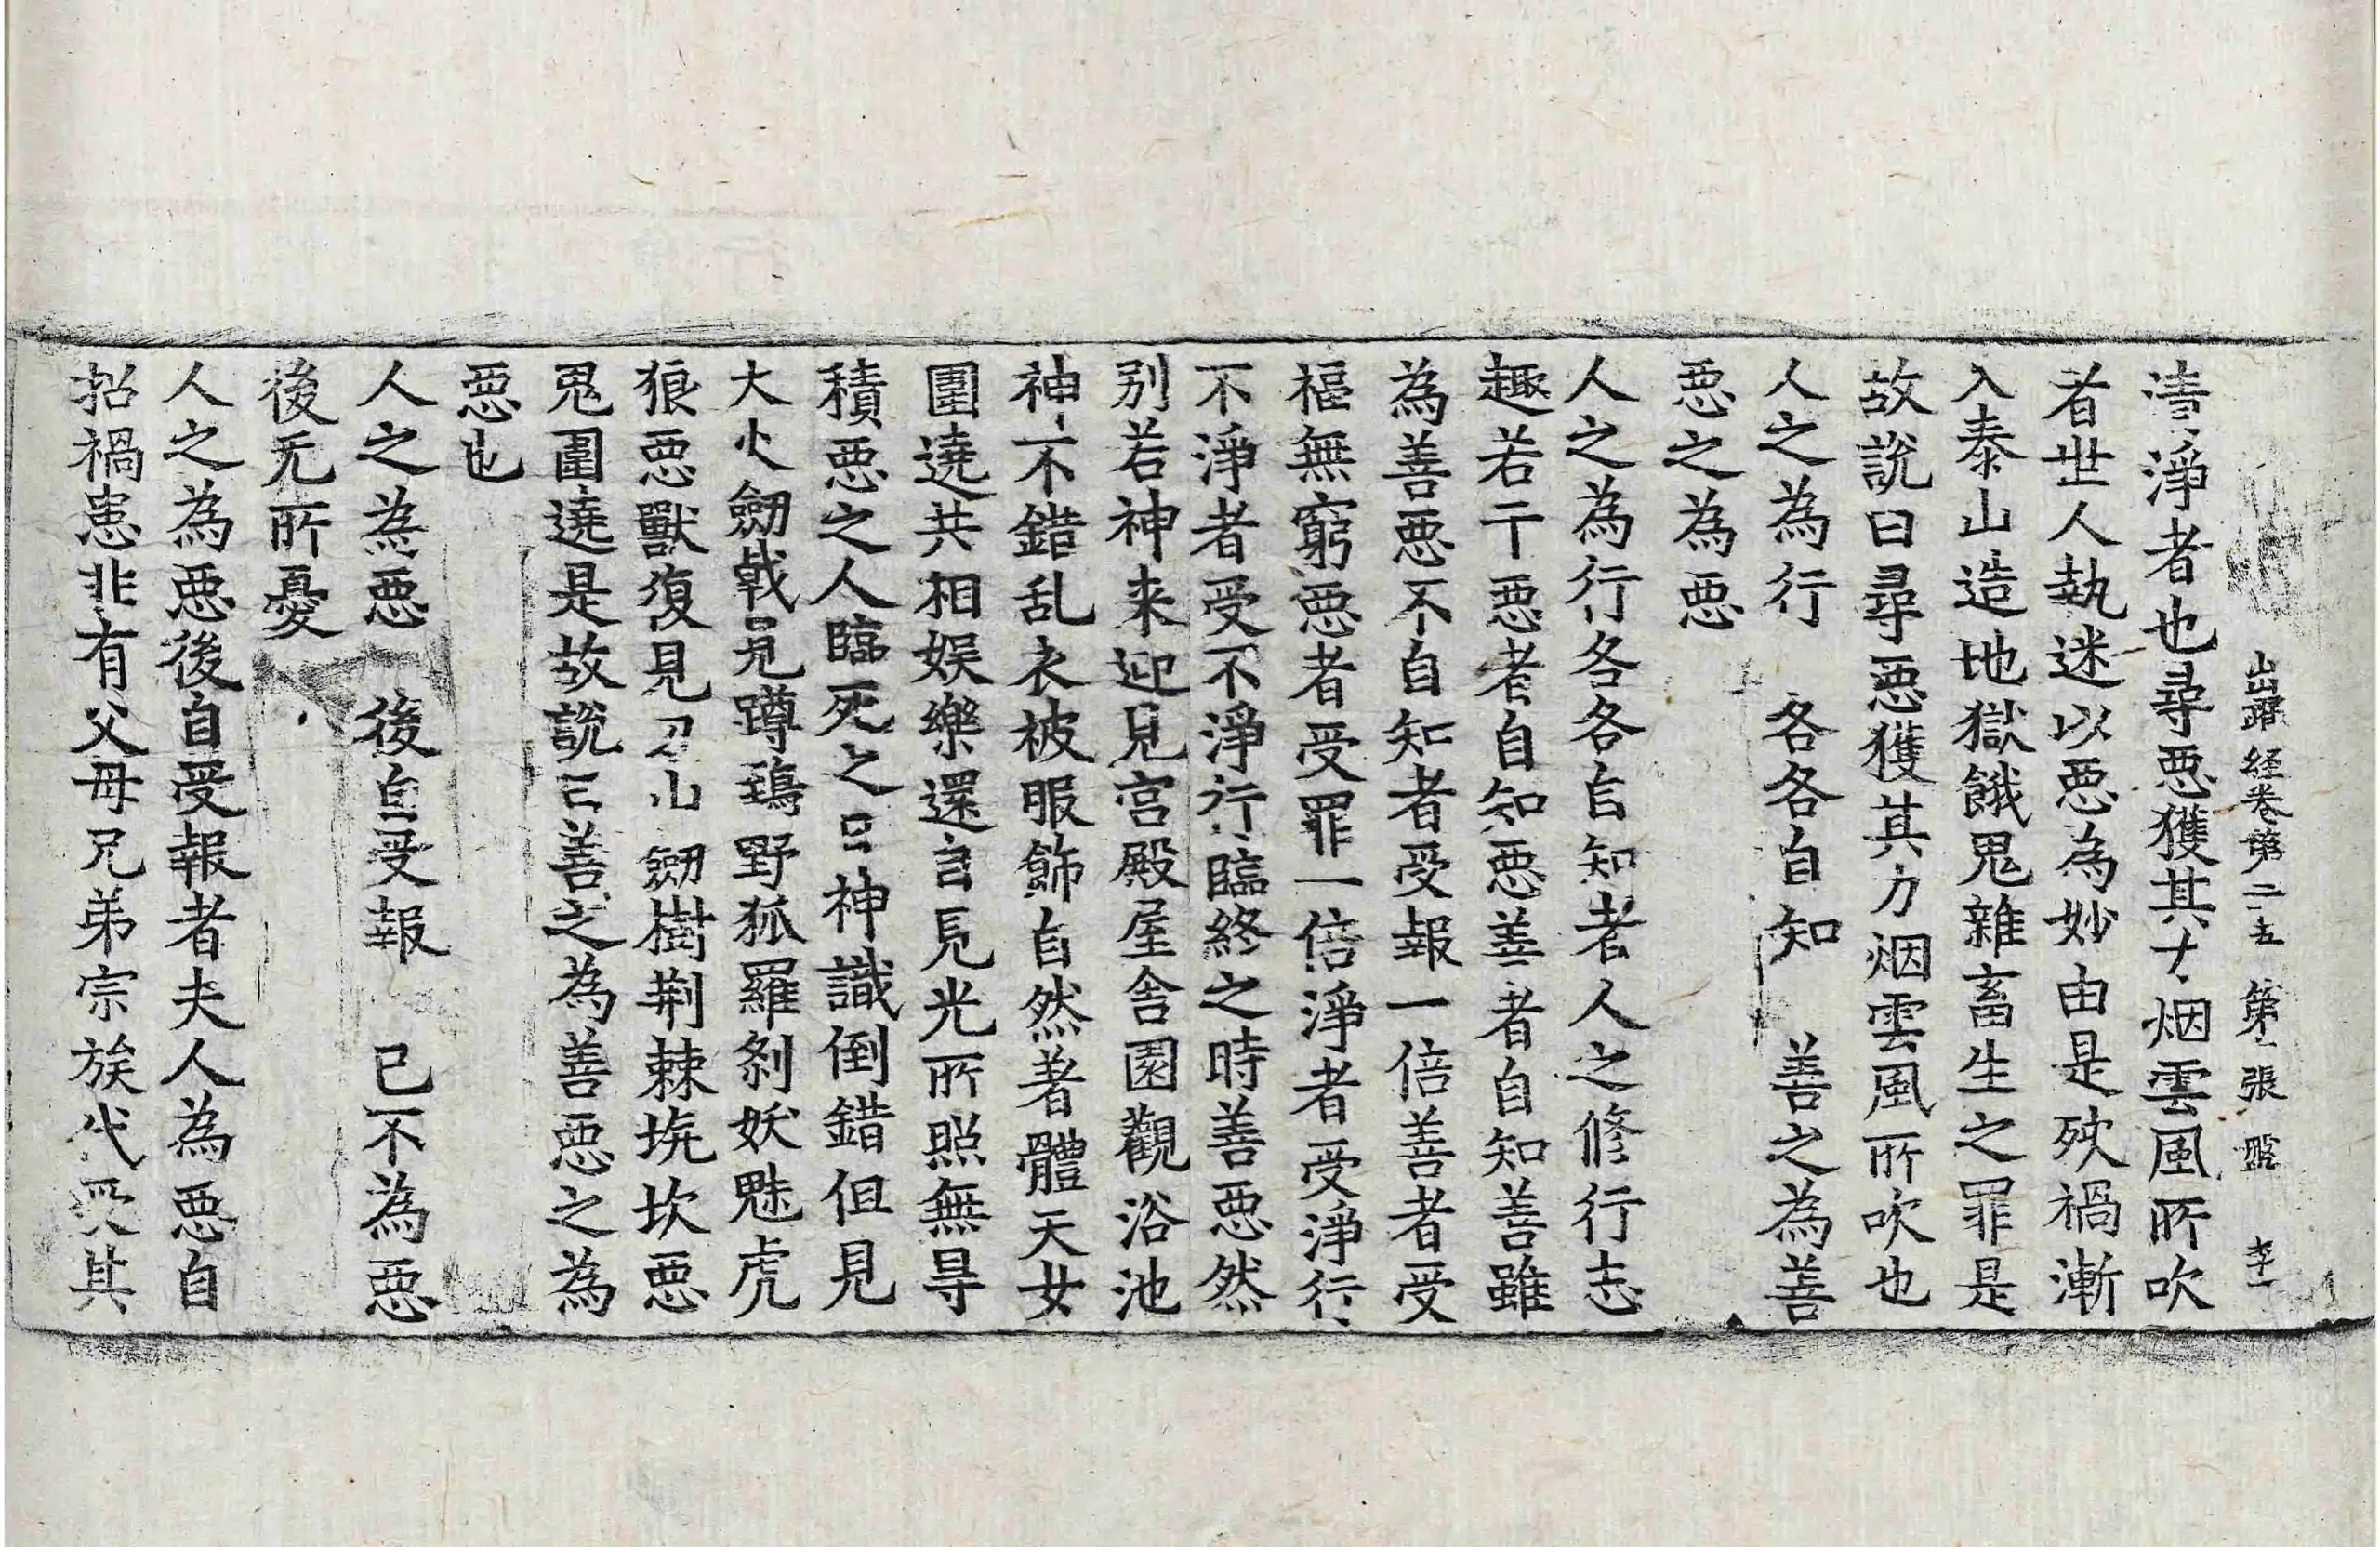 出曜経卷第二五 第二張 盤 李一
清淨者也尋惡獲其力烟雲風所吹
者世人執迷以惡為妙由是殃禍漸
入泰山造地獄餓鬼雜畜生之罪是
故說曰尋惡獲其力烟雲風所吹也
人之為行 各各自知 善之為善
惡之為惡
人之為行各各自知者人之修行志
趣若干惡者自知惡善者自知善雖
為善惡不自知者受報一倍善者受
福無窮惡者受罪一倍淨者受淨行
不淨者受不淨行臨終之時善惡然
別若神来迎見宮殿屋舍園觀浴池
神不錯乱衣被服飾自然著體天女
圍遶共相娛樂還自見光所照無㝵
積惡之人臨死之日神識倒錯但見
大火劒戟見蹲鵄野狐羅剎妖魅虎
狼惡獸復見刀山劒樹荆棘坑坎惡
鬼圍遶是故說曰善之為善惡之為
惡也
人之為惡 後自受報 已不為惡
後无所憂
人之為惡後自受報者夫人為惡自
招禍患非有父母兄弟宗族代受其